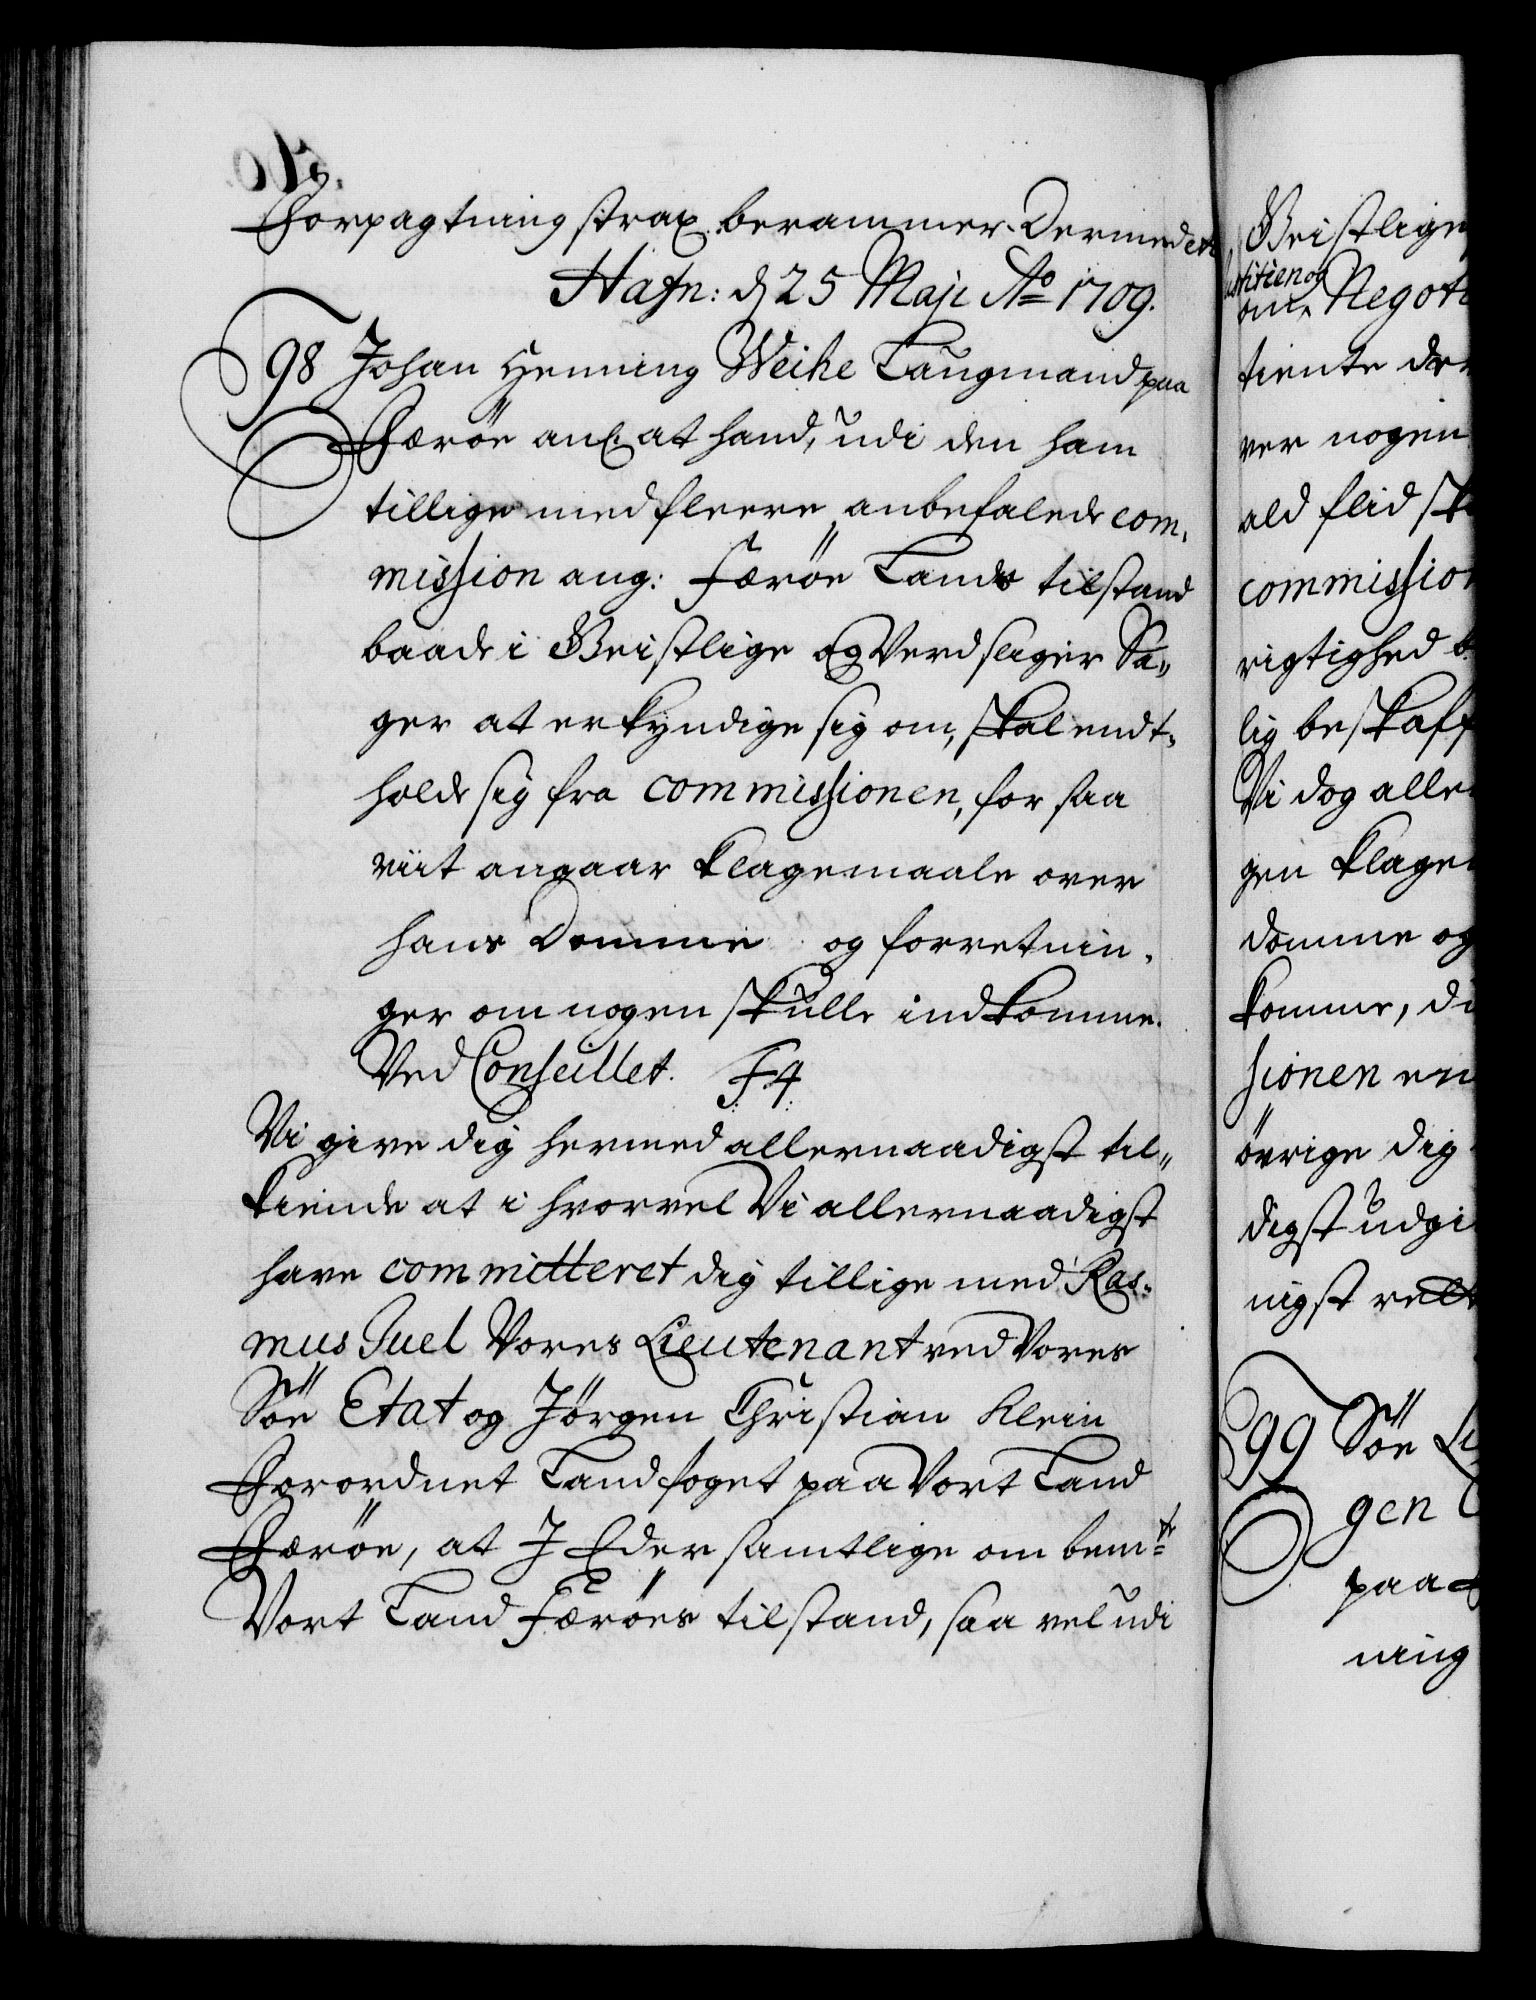 Forpagtning strax berammer. Dermed etc
Hafn: d 25 Maji Ao 1709.
98 Johan Henning Weihe Laugmand paa
Færöe anl. at hand, udi den ham
tillige med fleere anbefalede com,
mission ang: Færöe Lands tilstand
baade i Geistlige og Verdslager Sa„
ger at erkyndige sig om, skal endt,
holde sig fra commissionen, for saa
viit angaar klagemaale over
hans Domme og forretnin,
ger om nogen skulle indkomme.
Ved Conseillet. F4
Vi give dig hermed allernaadigst til„
kiende at i hvorvel Vi allernaadigst
have committeret dig tillige med Ras„
mus Juel Vores Lieutenant ved Vores
Söe Etat og Jörgen Christian Klein
Forordnet Landfoget paa Vort Land
Færöe, at I Eder samtlige om bemte
Vort Land Færöes tilstand, saa vel udi
Geistlige
Justitien og
om Negoti
tiente der
ver nogen
ald flid sk
commission
rigtighed
lig beskaff
Vi dog aller
gen klage
domme og
komme, di
sionen en
övrige dig
digst udgi
nigst rette
99 Söe Li
gen C
paa F
ning